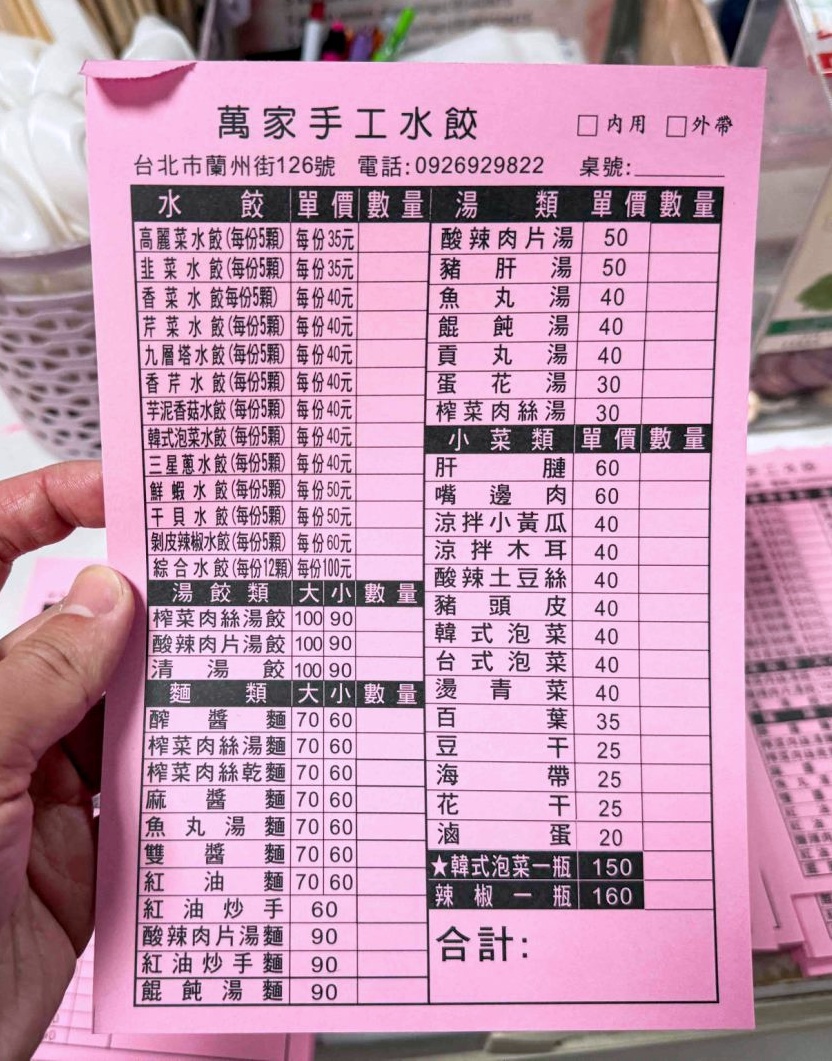 萬家手工水餃 □內用 □外帶
台北市蘭州街126號 電話:0926929822 桌號:
水餃 單價 數量
高麗菜水餃(每份5顆) 每份35元
韭菜水餃(每份5顆) 每份35元
香菜水餃每份5顆) 每份40元
芹菜水餃(每份5顆) 每份40元
九層塔水餃(每份5顆) 每份40元
香芹水餃(每份5顆) 每份40元
芋泥香菇水餃(每份5顆) 每份40元
韓式泡菜水餃(每份5顆) 每份40元
三星蔥水餃(每份5顆) 每份40元
鮮蝦水餃(每份5顆) 每份50元
干貝水餃(每份5顆) 每份50元
剝皮辣椒水餃(每份5顆) 每份60元
綜合水餃(每份12顆) 每份100元
湯餃類 大 小 數量
榨菜肉絲湯餃 100 90
酸辣肉片湯餃 100 90
清湯餃 100 90
麵類 大 小 數量
醡醬麵 70 60
榨菜肉絲湯麵 70 60
榨菜肉絲乾麵 70 60
麻醬麵 70 60
魚丸湯麵 70 60
雙醬麵 70 60
紅油麵 70 60
紅油炒手 60
酸辣肉片湯麵 90
紅油炒手麵 90
餛飩湯麵 90
湯類 單價 數量
酸辣肉片湯 50
豬肝湯 50
魚丸湯 40
餛飩湯 40
貢丸湯 40
蛋花湯 30
榨菜肉絲湯 30
小菜類 單價 數量
肝腱 60
嘴邊肉 60
涼拌小黃瓜 40
涼拌木耳 40
酸辣土豆絲 40
豬頭皮 40
韓式泡菜 40
台式泡菜 40
燙青菜 40
百葉 35
豆干 25
海帶 25
花干 25
滷蛋 20
★韓式泡菜一瓶 150
辣椒一瓶 160
合計: